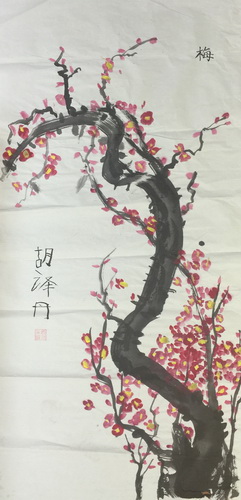 梅
胡泽丹